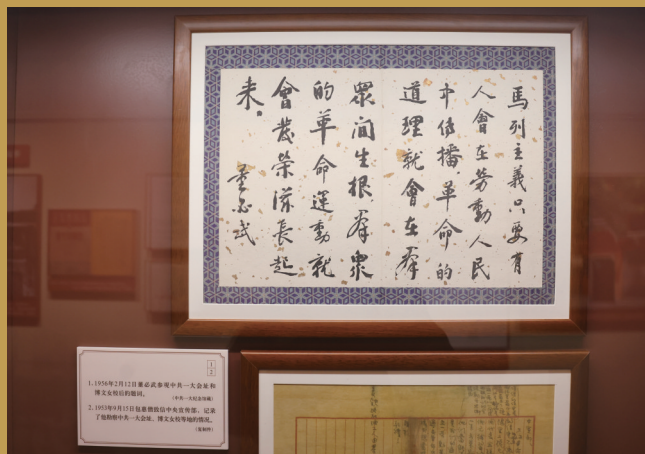 馬列主義只要有
人會在勞動人民
中傳播，革命的
道理就會在羣
眾间生根，羣眾
的革命運動就
會發榮滋長起
来。
董必武
1
2
1. 1956年2月12日董必武参观中共一大会址和
博文女校后的题词。
（中共一大纪念馆藏）
2. 1953年9月15日包惠僧致信中央宣传部，记录
了他勘察中共一大会址、博文女校等地的情况。
（复制件）